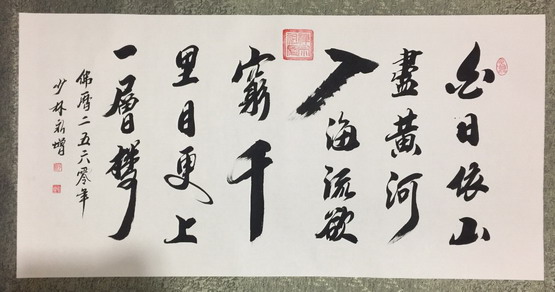 白日依山
盡黃河
入海流欲
窮千
里目更上
一層樓
佛曆二五六零年
少林